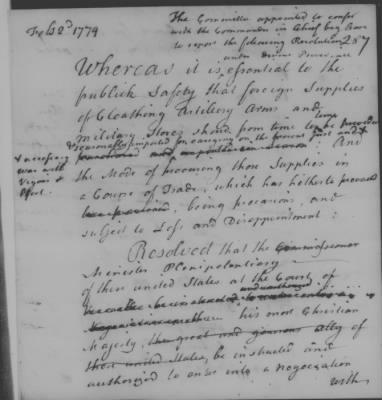 Feb 2d 1779
The Committee appointed to confer
with the Commander in Chief beg leave
to report the following Resolution 257
under
Whereas it is essential to the
publick Safety that foreign Supplies
of Cloathing Artillery Arms and
Military Stores should from time to time be provided
& seasonably imported for carrying on the present just and
& necessary
war with
Vigour &
Effect.
: And
the Mode of procuring those Supplies in
a Course of Trade, which has hitherto proceeded
being precarious, and
subject to Loss and Disappointment:
Resolved that the Commissioner
Minister Plenipotentiary
of these united States at the Court of
his most Christian
Majesty, the great and generous ally of
these united States, be instructed and
authorized to enter into a Negociation
with